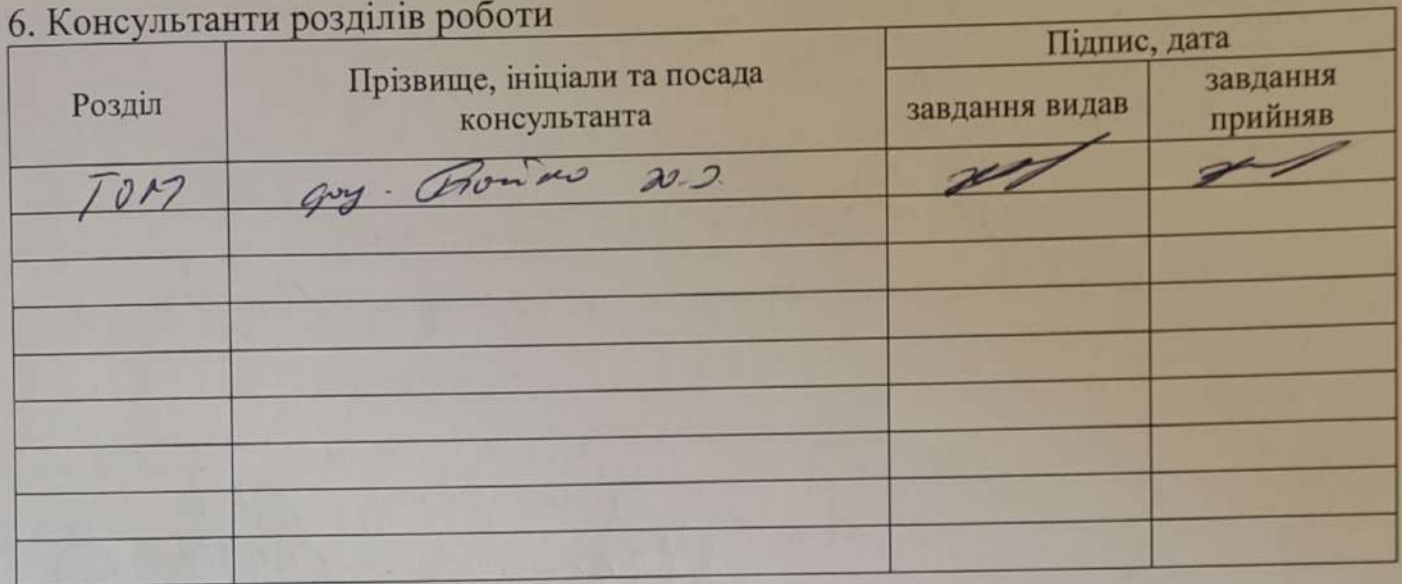 6. Консультанти розділів роботи
Розділ
Прізвище, ініціали та посада
консультанта
Підпис, дата
завдання видав
завдання
прийняв
ТОМ доц.